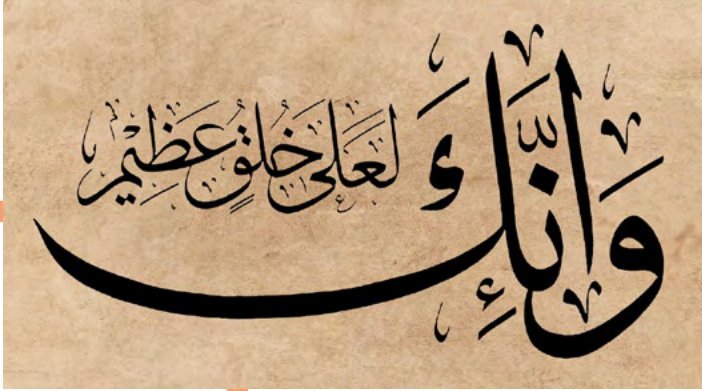 وَإِنَّكَ لَعَلَى خُلُقٍ عَظِيْمٍ